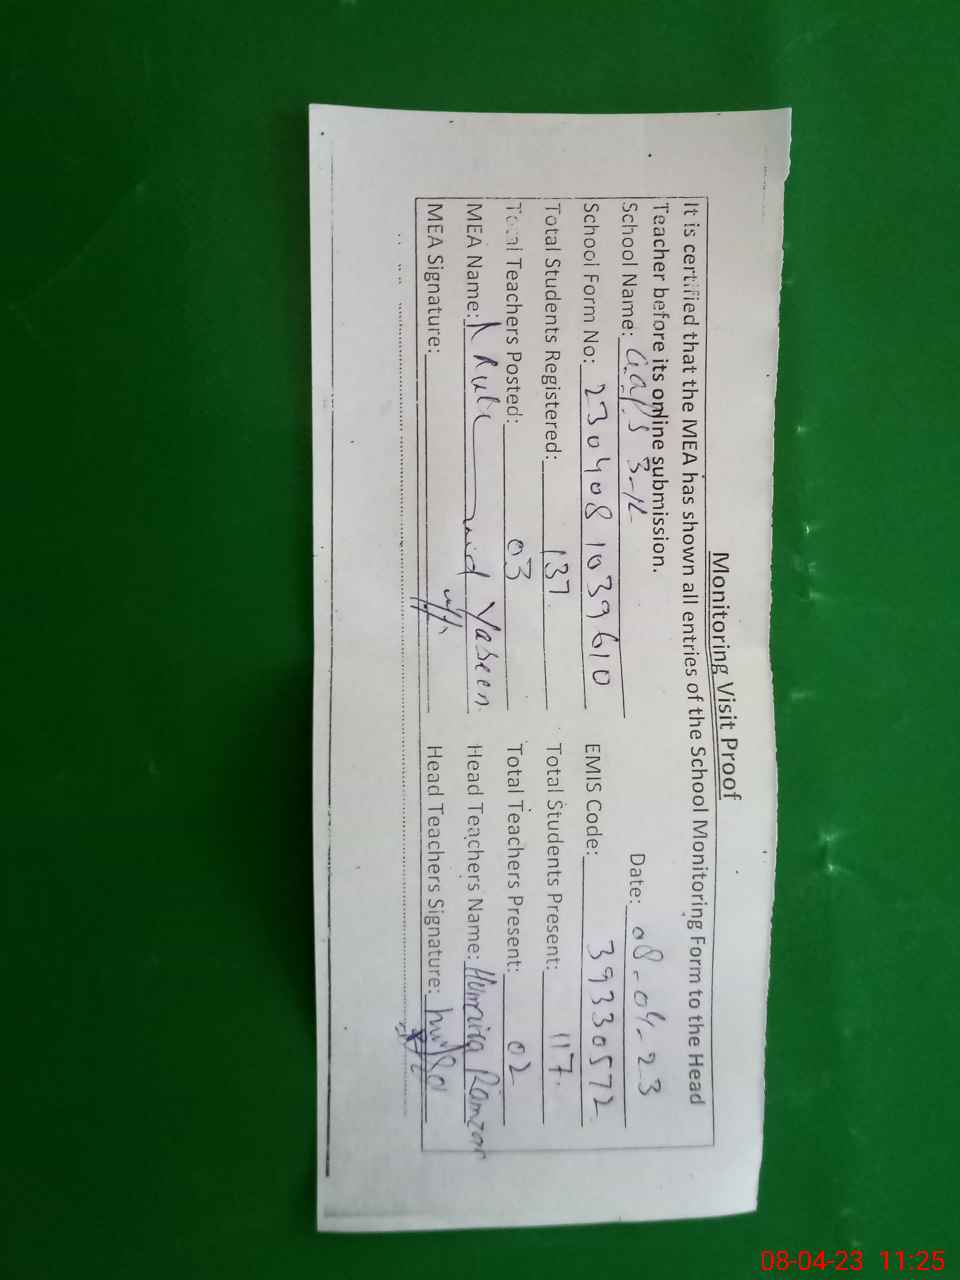 Monitoring Visit Proof
It is certified that the MEA has shown all entries of the School Monitoring Form to the Head
Teacher before its online submission.
School Name: 3-R Date: 08-04-23
School Form No: 2304081039610 EMIS Code: 39330572
Total Students Registered: 137 Total Students Present: 117
Total Teachers Posted: 03 Total Teachers Present: 02
MEA Name: Yaseen Head Teachers Name: Humaira Ramzan
MEA Signature: Head Teachers Signature:
08-04-23 11:25